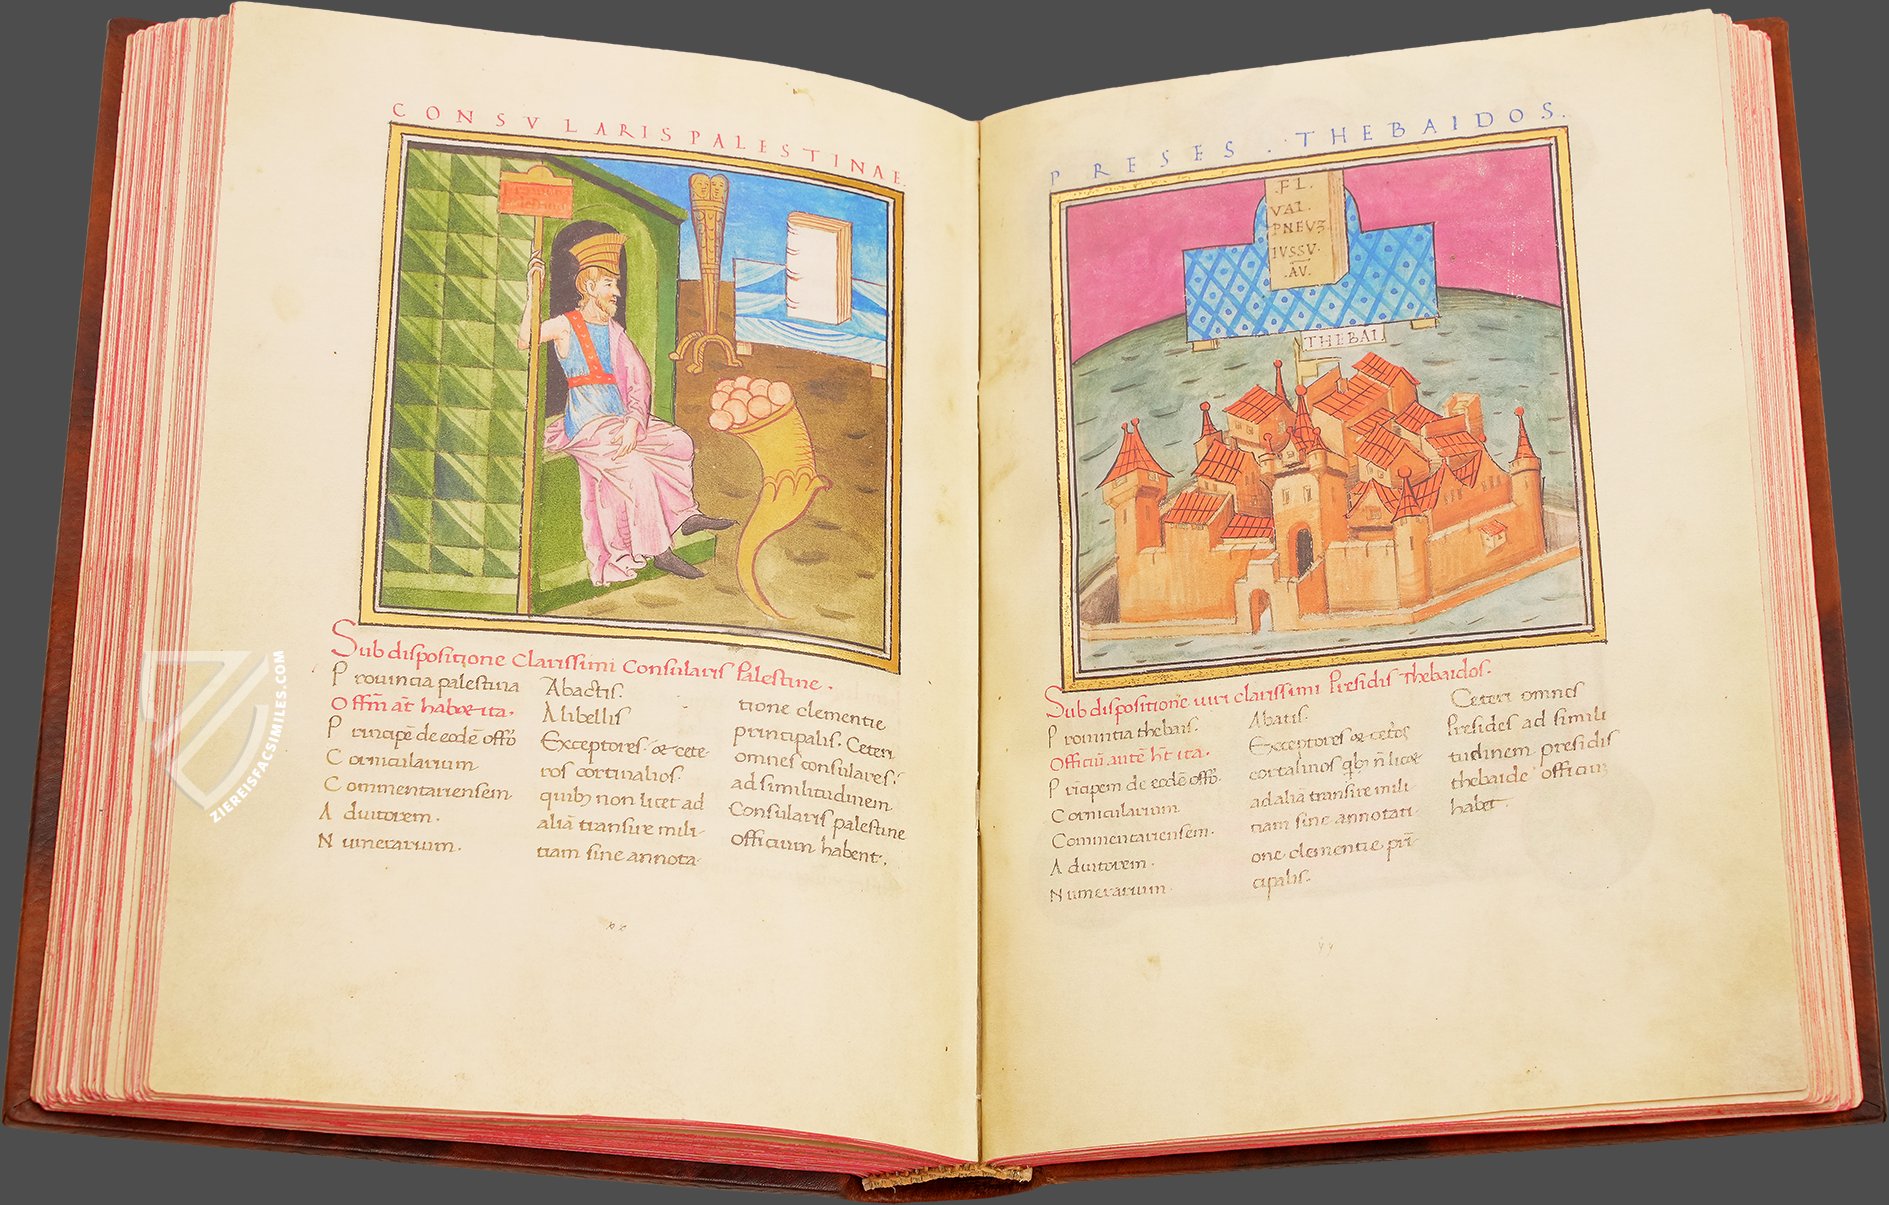 CONSVLARIS PALESTINAE.
Sub dispositione Clarissimi Consularis Palestine.
Prouincia palestina
Offm̄ at̄ habet ita.
Principē de eodē offō
Cornicularium
Commentariensem
Adiutorem.
Numerarium.
Abactis.
Alibellis
Exceptores & cete-
ros cortinalios.
quibȝ non licet ad
aliā transire mili-
tiam sine annota-
tione clementie
principalis. Ceteri
omnes consulares.
ad similitudinem
Consularis palestine
officium habent.
PRESES. THEBAIDOS.
.FL.
VAL.
PNEVȜ
IVSSV.
.AV.
THEBAI
Sub dispositione uiri clarissimi Presidis Thebaidos.
Prouintia thebais.
Officiū autē hn̄t ita.
Pricipem de eodē offō.
Cornicularium
Commentariensem.
Adiutorem.
Numerarium.
Abatis.
Exceptores & cetōs
cortalinos qb; n̄ licet
ad aliā transire mili
tiam sine annotati-
one clementie prī
cipalis.
Ceteri omnes
Presides ad simili
tudinem presidis
thebaide officium
habet.
ZIEREISFACSIMILES.COM